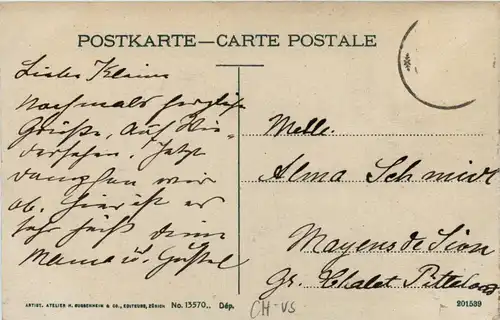 POSTKARTE—CARTE POSTALE
Liebe Kleine
Nochmals herzliche
Grüße, Auf Wie-
dersehen. Jetzt
dampfen wir
ab. Hier ist es
sehr heiß. Deine
Mama u. Gustel
Melle.
Alma Schmidt
Mayens de Sion
Gr. Chalet Pitteloud
ARTIST. ATELIER H. GUGGENHEIM & CO., EDITEURS, ZÜRICH No. 13570.. Dép.
CH-VS
201539